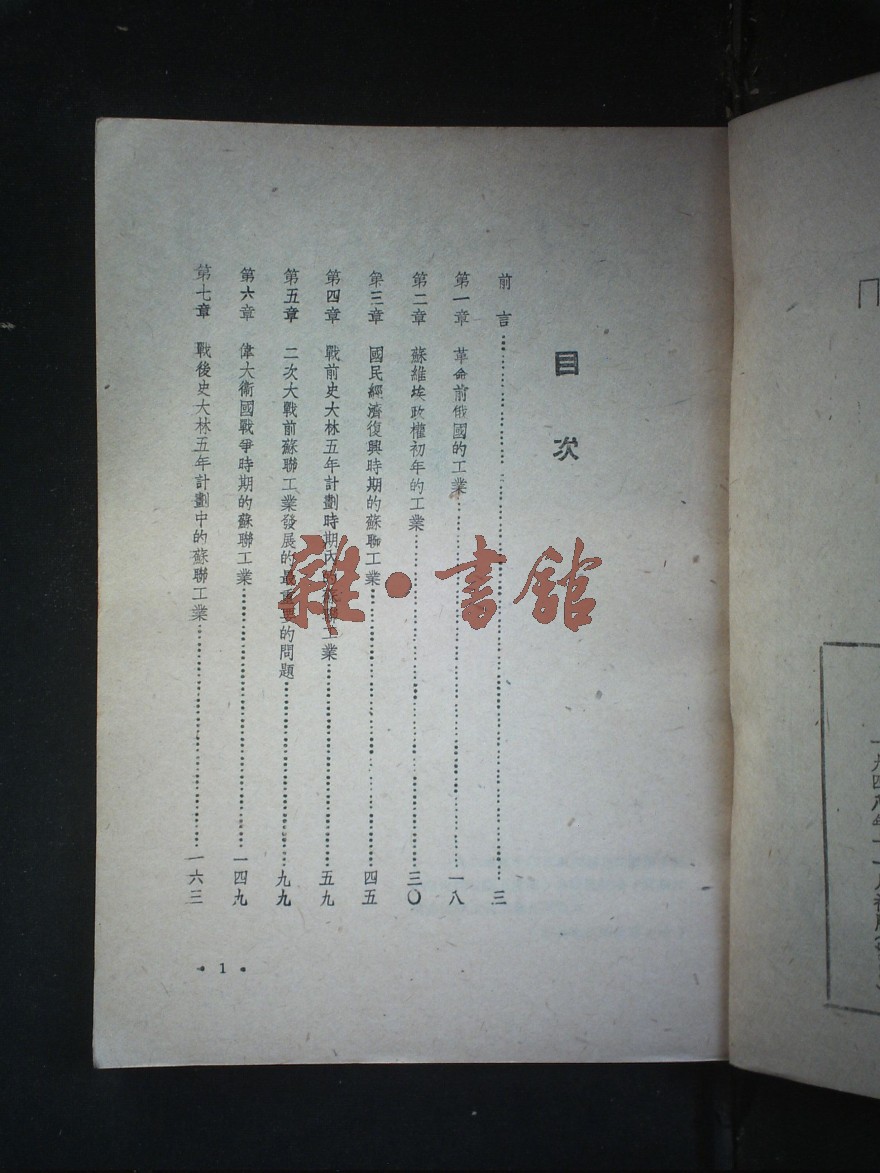 目次
前言……三
第一章 革命前俄國的工業……一八
第二章 蘇維埃政權初年的工業……三〇
第三章 國民經濟復興時期的蘇聯工業……四五
第四章 戰前史大林五年計劃時期內的蘇聯工業……五九
第五章 二次大戰前蘇聯工業發展的最重要的問題……九九
第六章 偉大衛國戰爭時期的蘇聯工業……一四九
第七章 戰後史大林五年計劃中的蘇聯工業……一六三
• 1 •
雜•書館